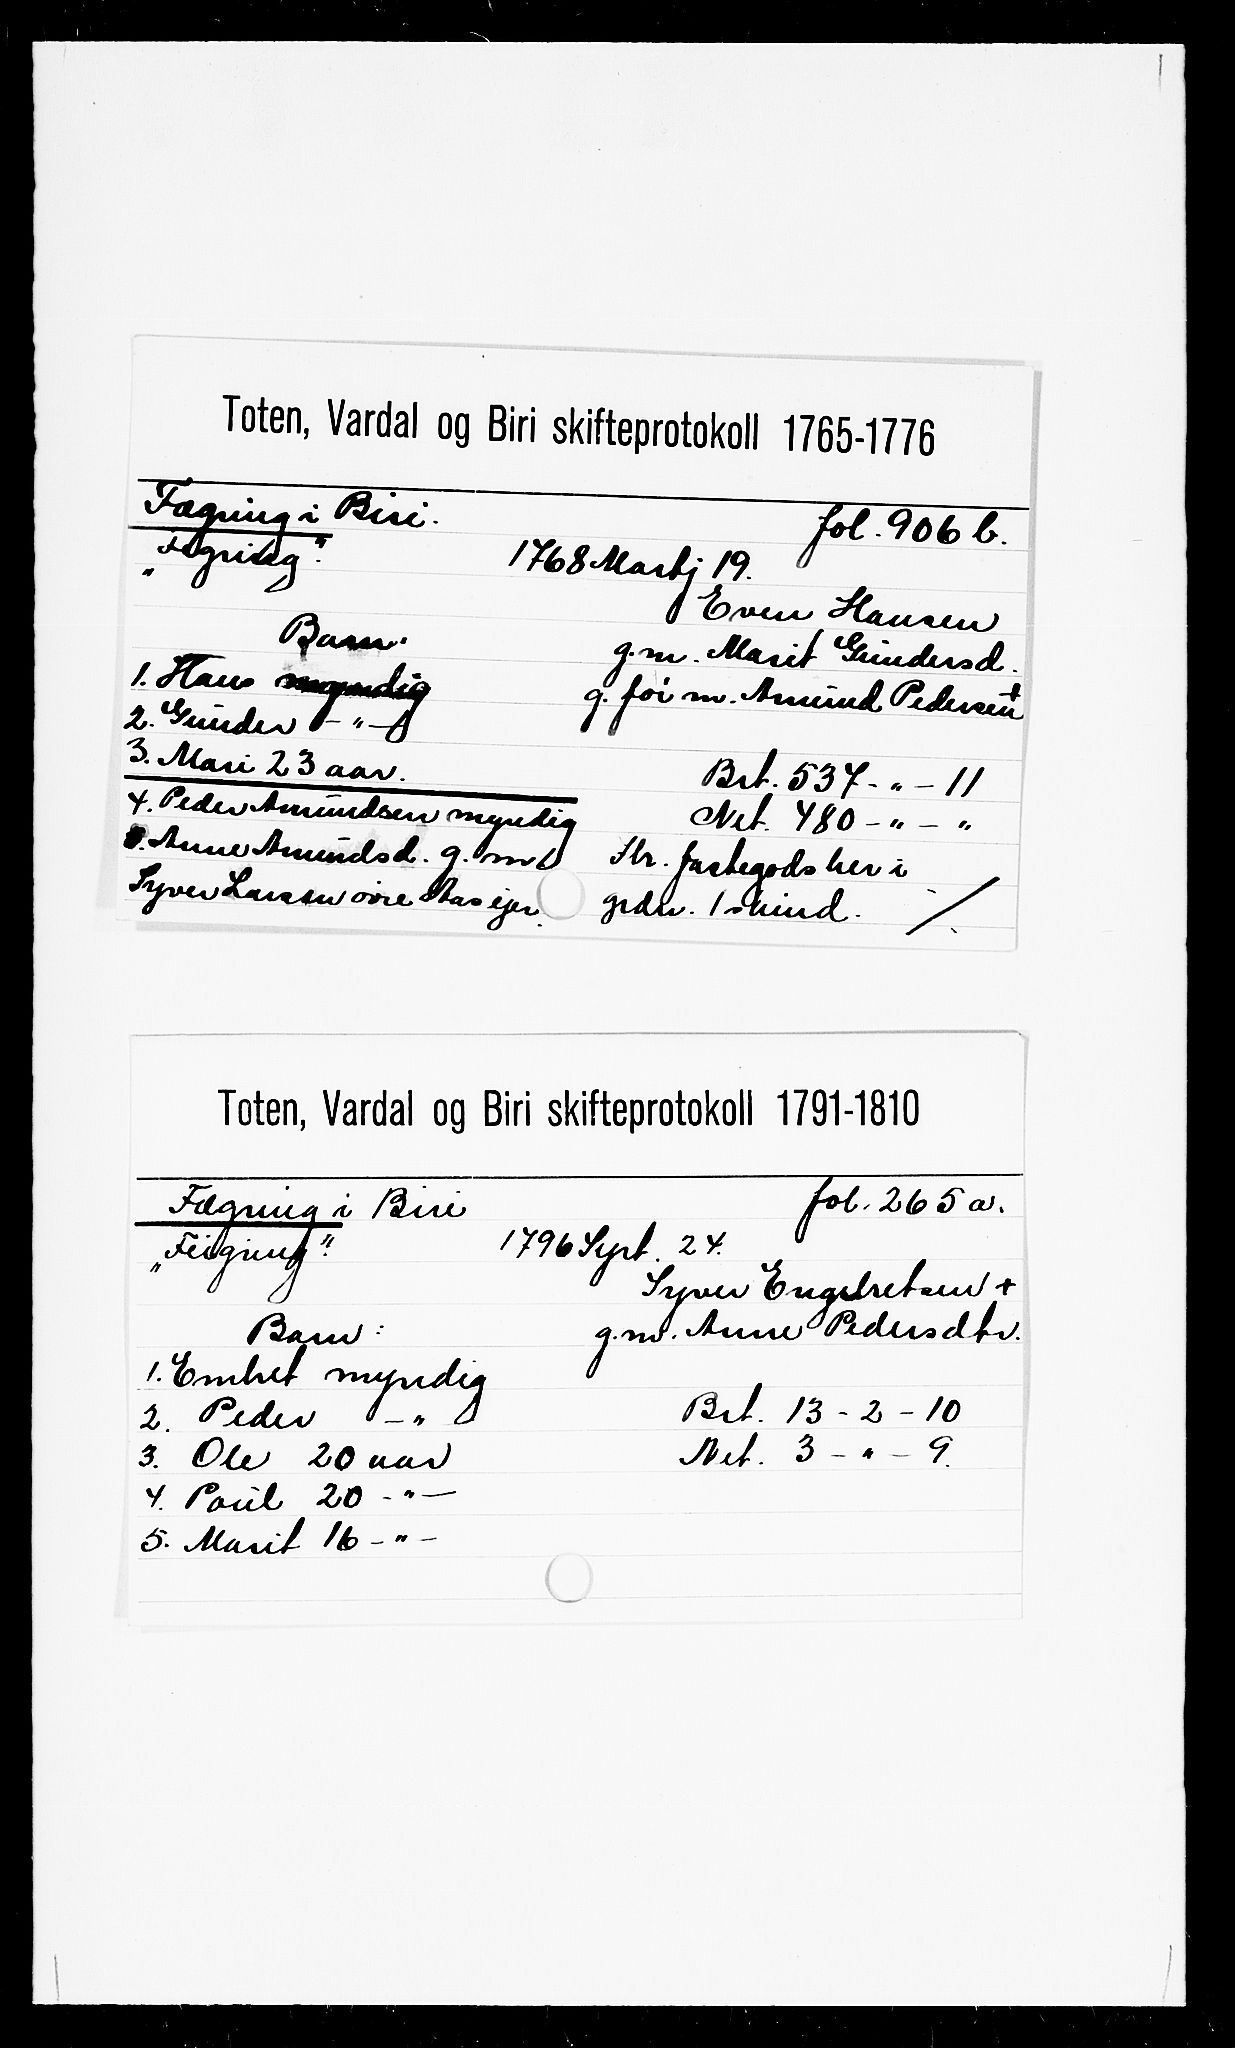 Toten, Vardal og Biri skifteprotokoll 1765-1776
Fægring i Biri. fol. 906 b.
„Fegring". 1768 Martj 19.
Even Hansen
Barn: g.m. Marit Gundersd.
1. Hans myndig g. før m. Amund Pedersen +
2. Gunder - " -
3. Mari 23 aar. Brt. 537 - " - 11
4. Peder Amundsen myndig Net. 480 - " - "
5. Anne Amundsd. g. m. Sbr. fastegods her i
Syver Larsen øvre Aas ejer. grdn. 1 skind.
Toten, Vardal og Biri skifteprotokoll 1791-1810
Fægring i Biri fol. 265 a.
„Feigring". 1796 Sept. 24.
Syver Engebretsen +
Barn: g.m. Anne Pedersdtr.
1. Embret myndig
2. Peder - " Brt. 13 - 2 - 10
3. Ole 20 aar Net. 3 - " - 9.
4. Poul 20 - " -
5. Marit 16 - " -